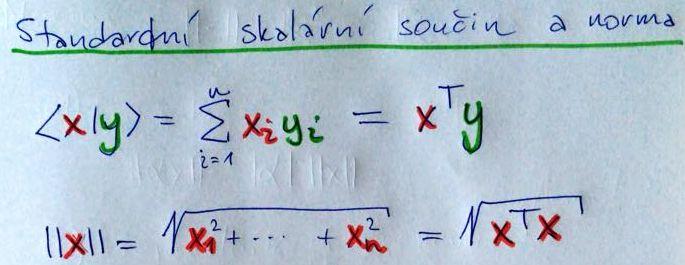 Standardní skalární součin a norma
⟨x|y⟩ = ∑ᵢ₌₁ⁿ xᵢyᵢ = xᵀy
||x|| = √(x₁² + ··· + xₙ²) = √(xᵀx)